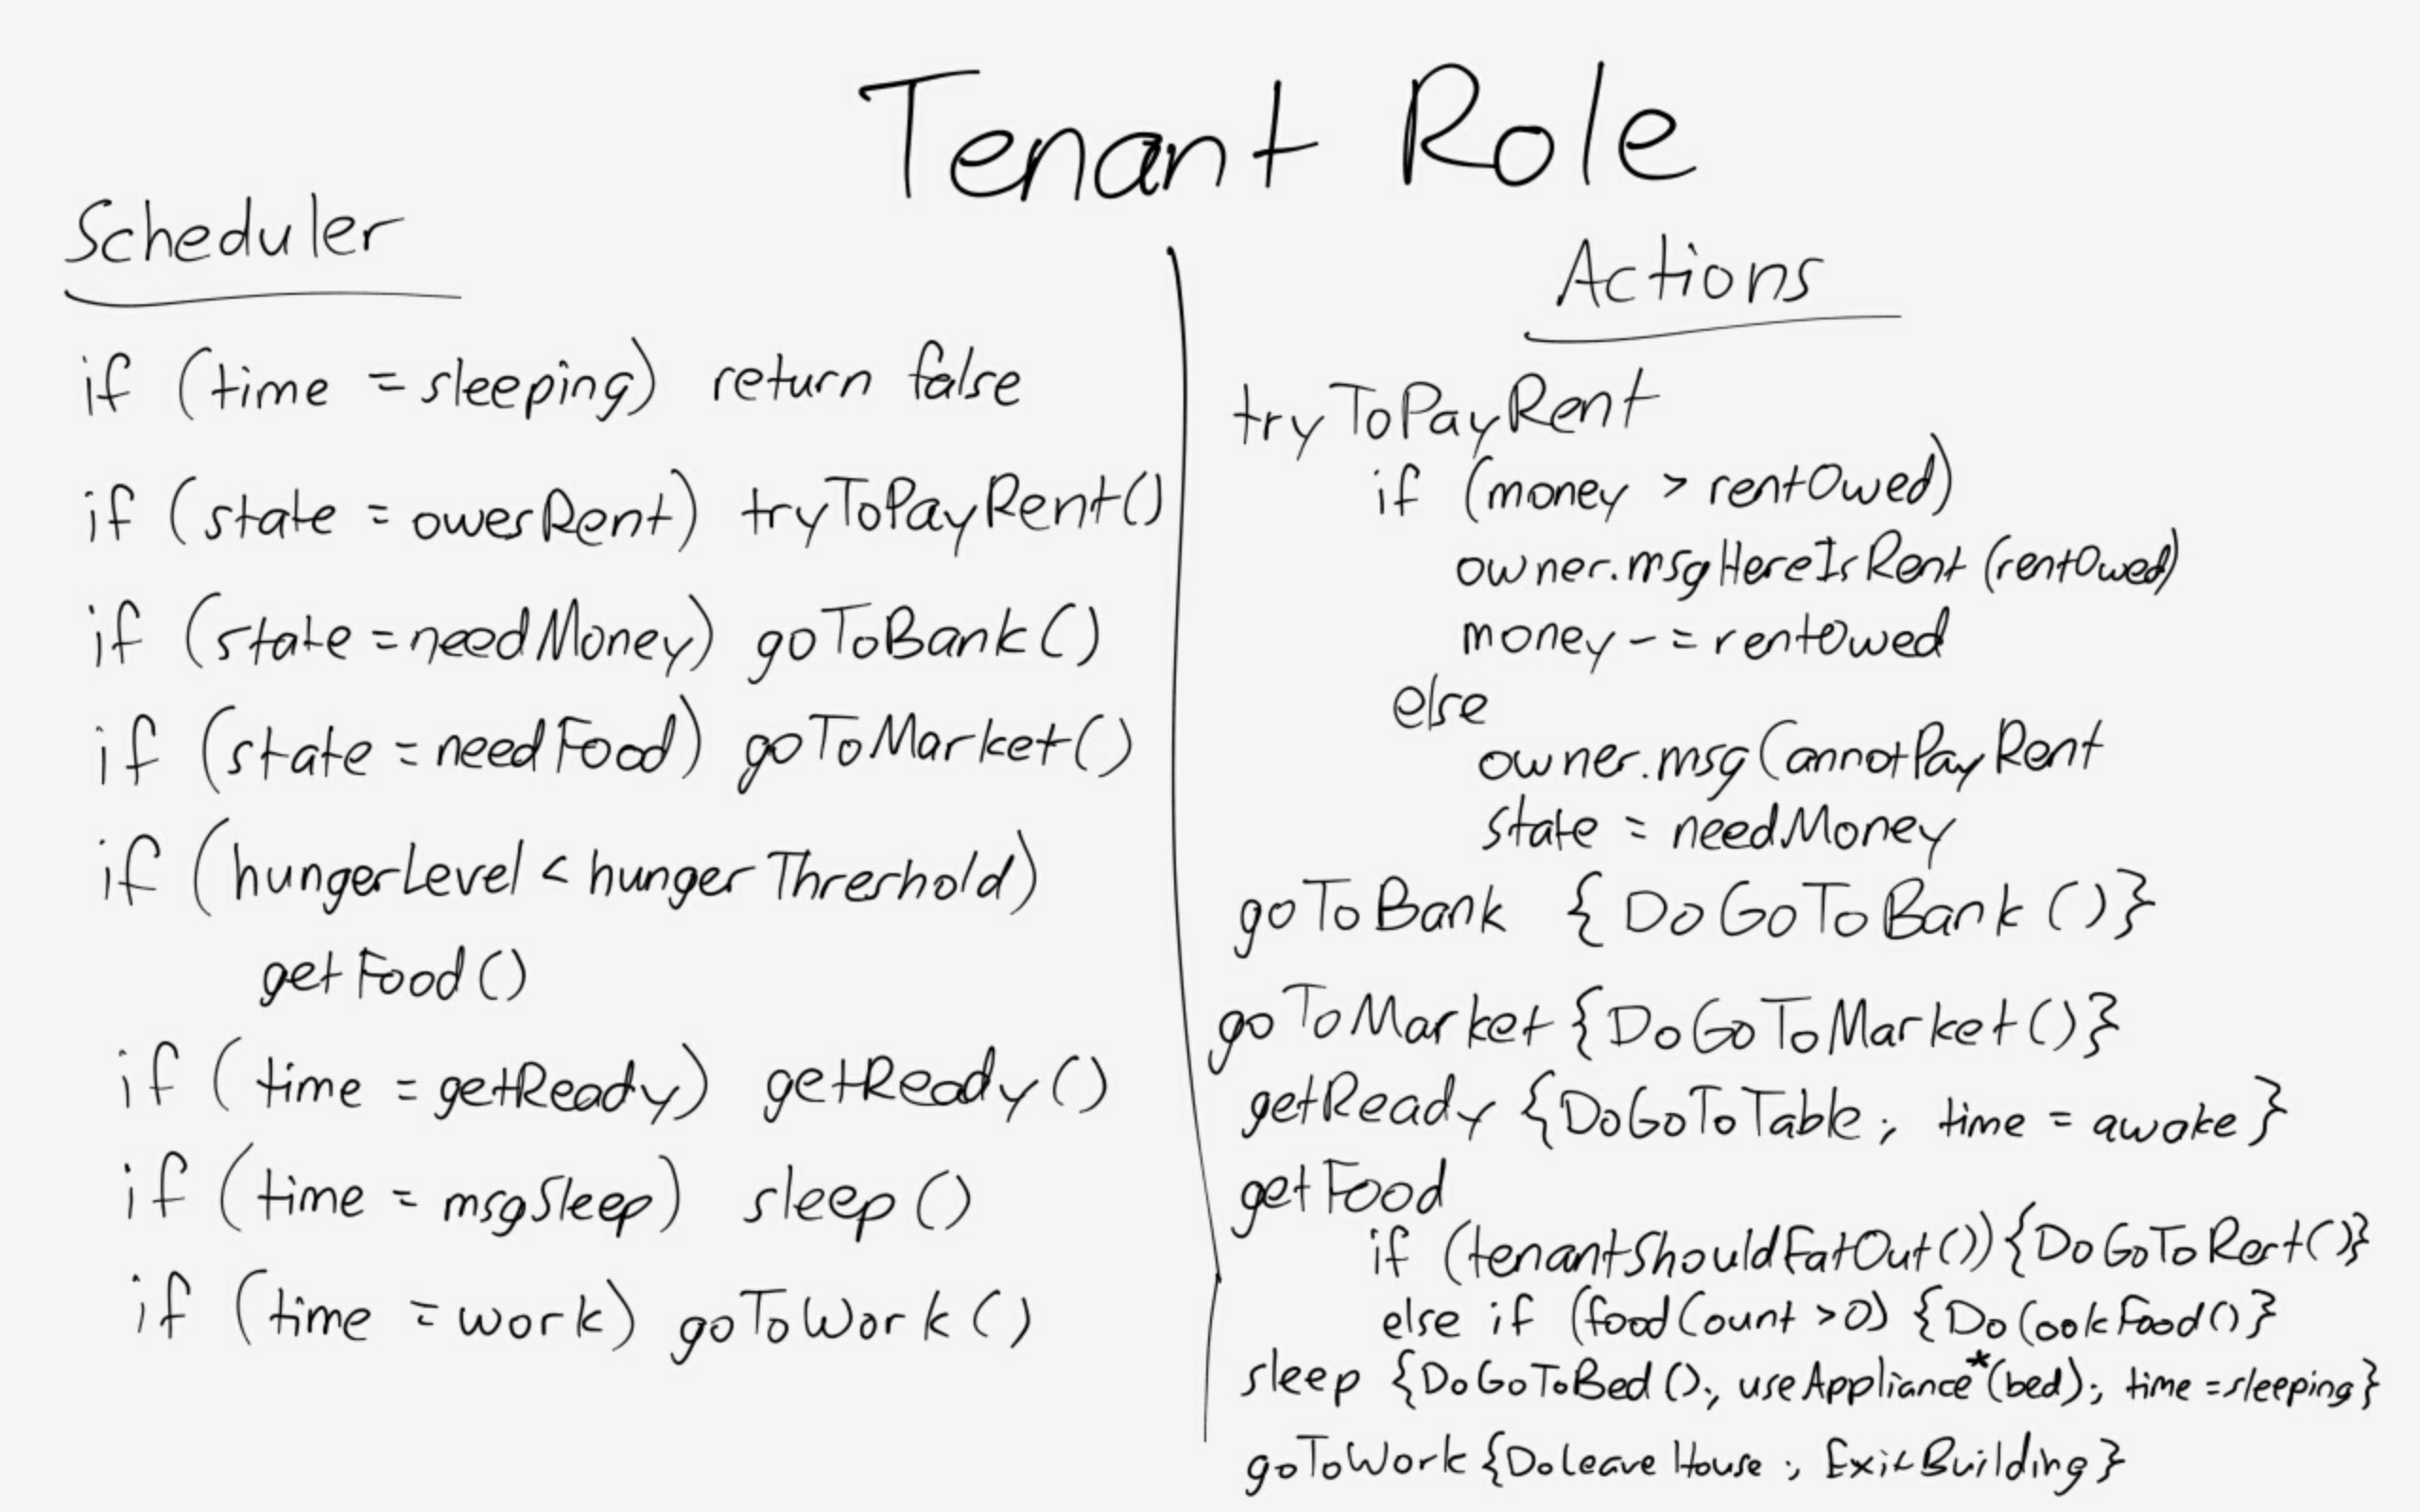 Tenant Role
Scheduler
if (time = sleeping) return false
if (state = owesRent) tryToPayRent()
if (state = needMoney) goToBank()
if (state = needFood) goToMarket()
if (hungerLevel < hungerThreshold)
getFood()
if (time = getReady) getReady()
if (time = msgSleep) sleep()
if (time = work) goToWork()
Actions
tryToPayRent
if (money > rentOwed)
owner.msgHereIsRent (rentOwed)
money -= rentOwed
else
owner.msgCannotPayRent
state = needMoney
goToBank {DoGoToBank()}
goToMarket {DoGoToMarket()}
getReady {DoGoToTable; time = awake}
getFood
if (tenantShouldEatOut()) {DoGoToRest()}
else if (foodCount > 0) {DoCookFood()}
sleep {DoGoToBed(); useAppliance*(bed); time = sleeping}
goToWork {DoLeaveHouse; ExitBuilding}